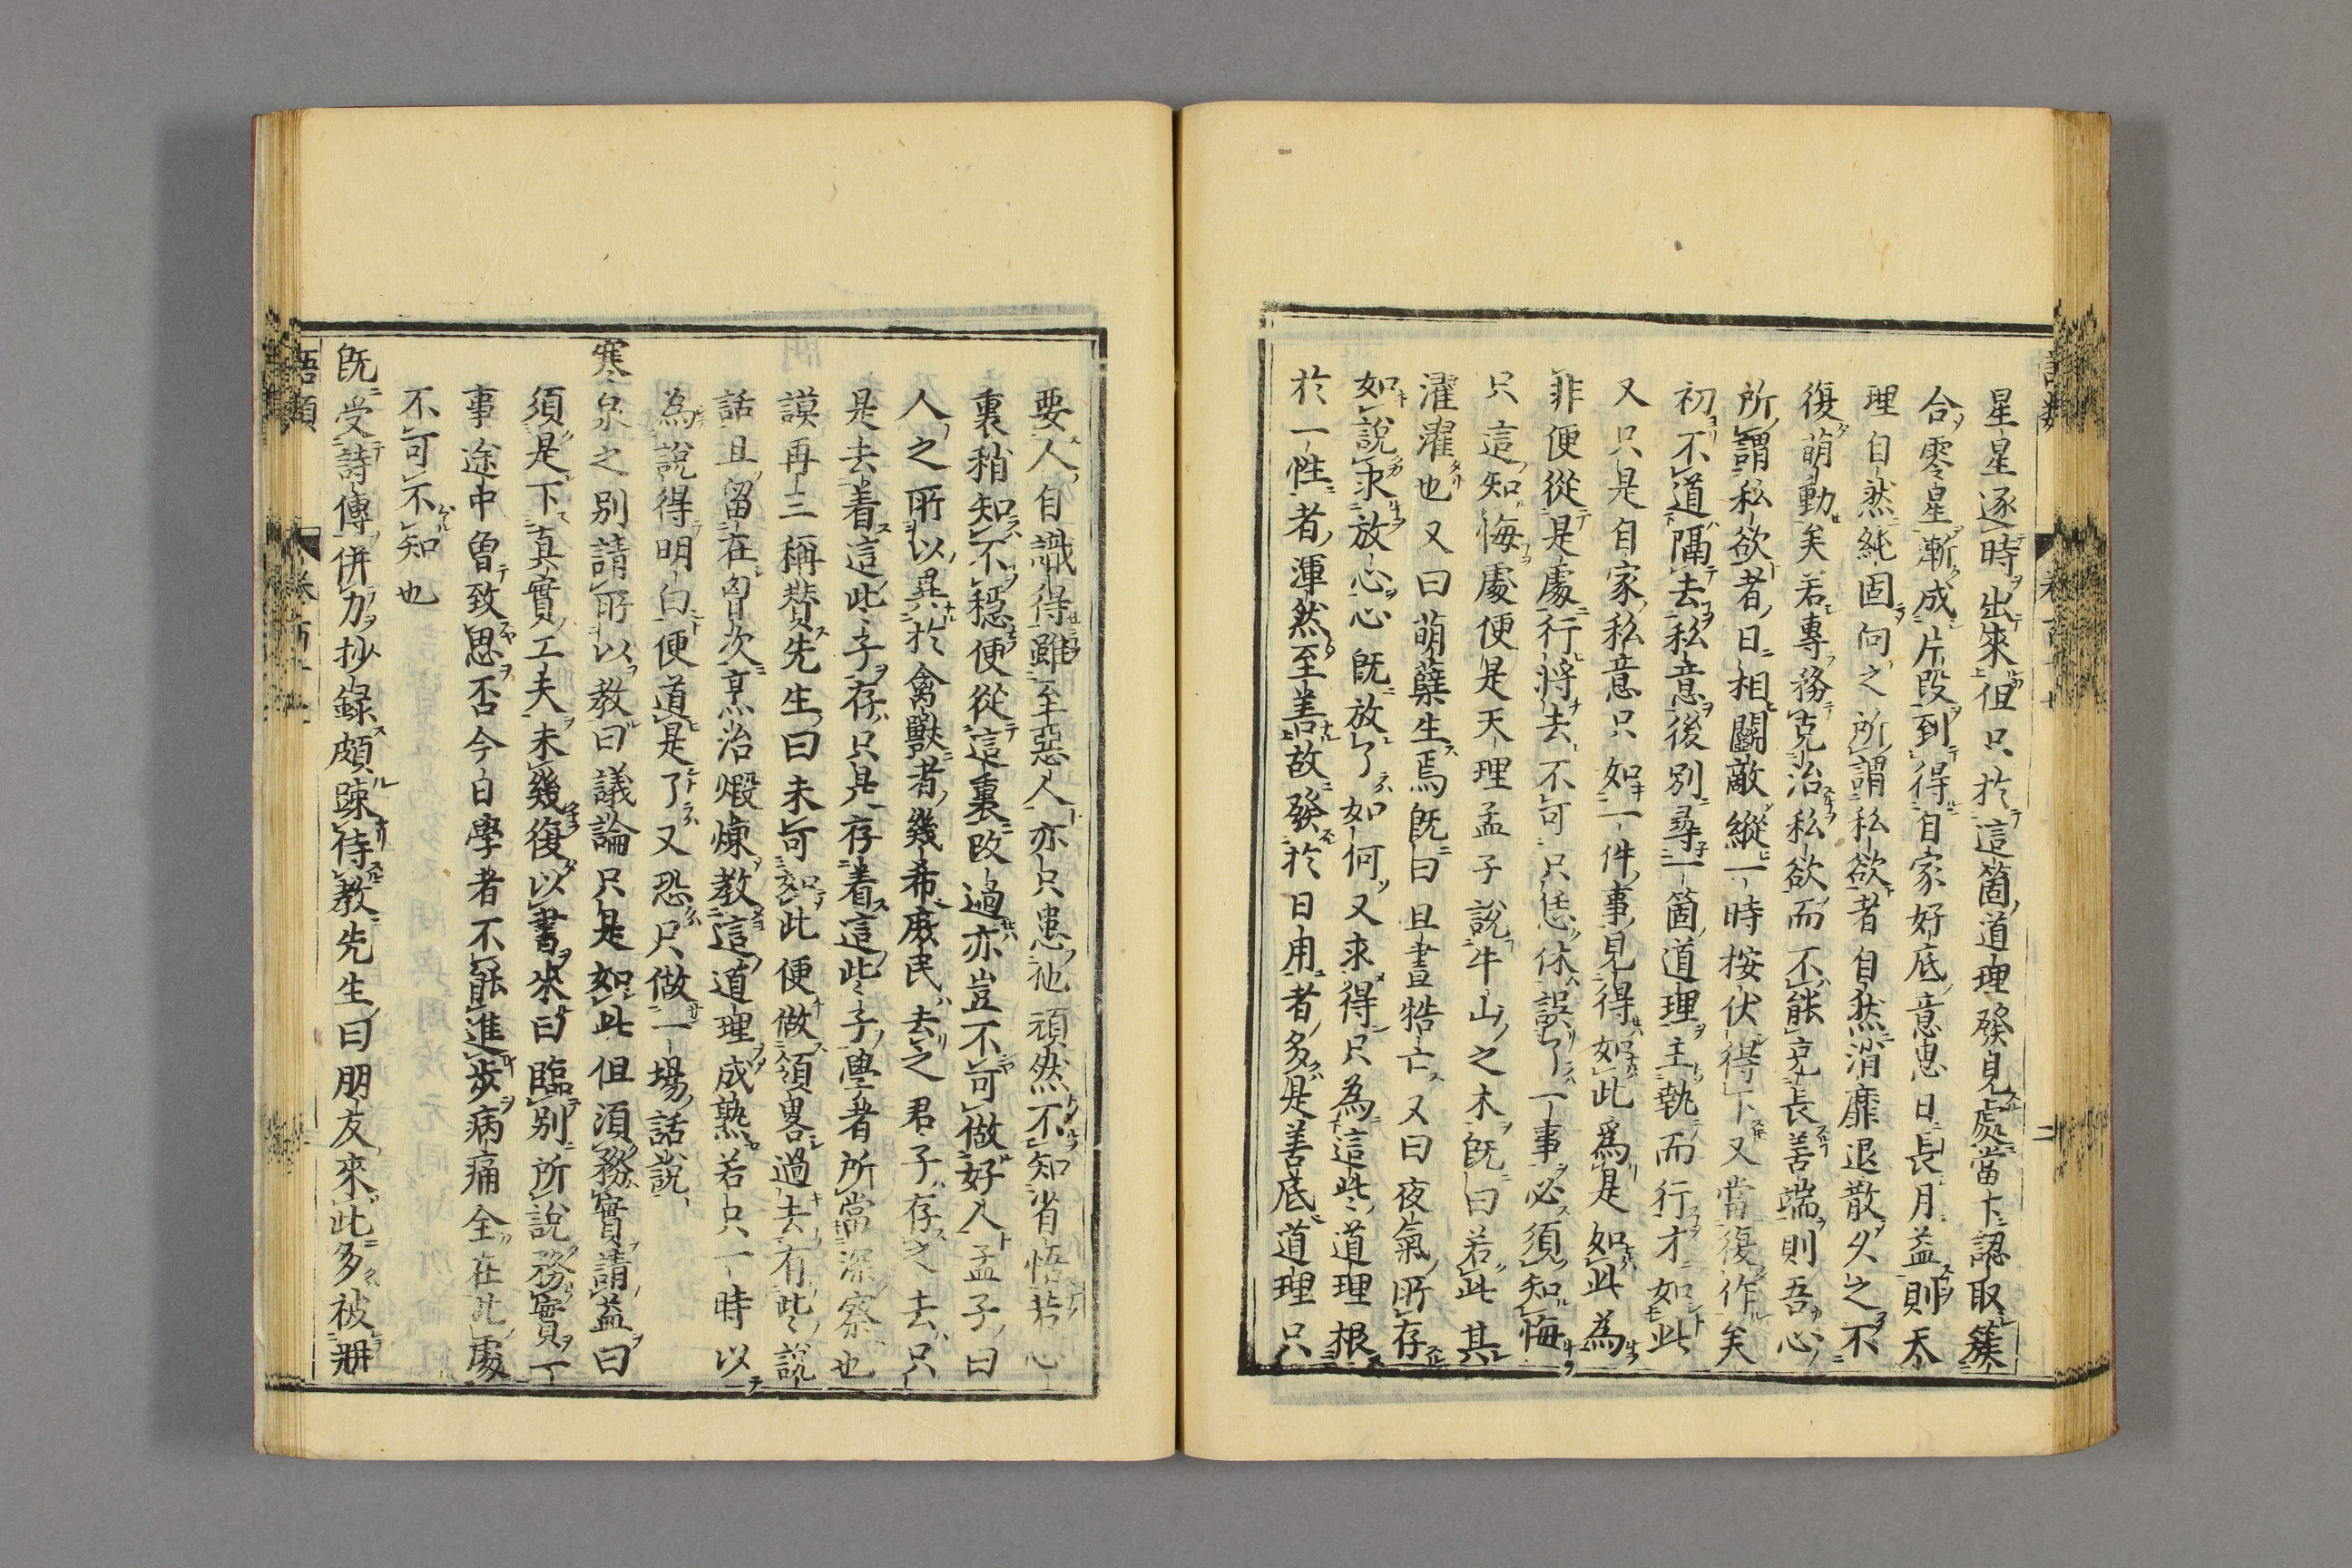 星星逐時出來但只於這箇道理發見處當下認取簇
合零星漸成片段到得自家好底意思日長月益則天
理自然純固向之所謂私欲者自然消靡退散久之不
復萌動矣若專務克治私欲而不能充長善端則吾心
所謂私欲者日相鬭敵縱一時按伏得下又當復作矣
初不道隔去私意後別尋一箇道理主執而行才如此
又只是自家私意只如一件事見得如此為是如此為
非便從是處行將去不可只恁休誤了一事必須知悔
只這知悔處便是天理孟子說牛山之木既曰若此其
濯濯也又曰萌蘗生焉既曰旦晝牿亡又曰夜氣所存
如說求放心心既放了如何又求得只為這些道理根
於一性者渾然至善故發於日用者多是善底道理只
要人自識得雖至惡人亦只患他頑然不知省悟若心
裏稍知不穩便從這裏改過亦豈不可做好人孟子曰
人之所以異於禽獸者幾希庶民去之君子存之去只
是去着這些子存只是存着這些子學者所當深察也
謨再三稱贊先生曰未可如此便做領畧過去有些說
話且留在胷次烹治煆煉教這道理成熟若只一時以
為說得明白便道是了又恐只做一場話說
寒泉之別請所以教曰議論只是如此但須務實請益曰
須是下真實工夫未幾復以書來曰臨別所說務實一
事途中曾致思否今日學者不能進步病痛全在此處
不可不知也
既受詩傳併力抄錄頗踈侍教先生曰朋友來此多被冊
語類